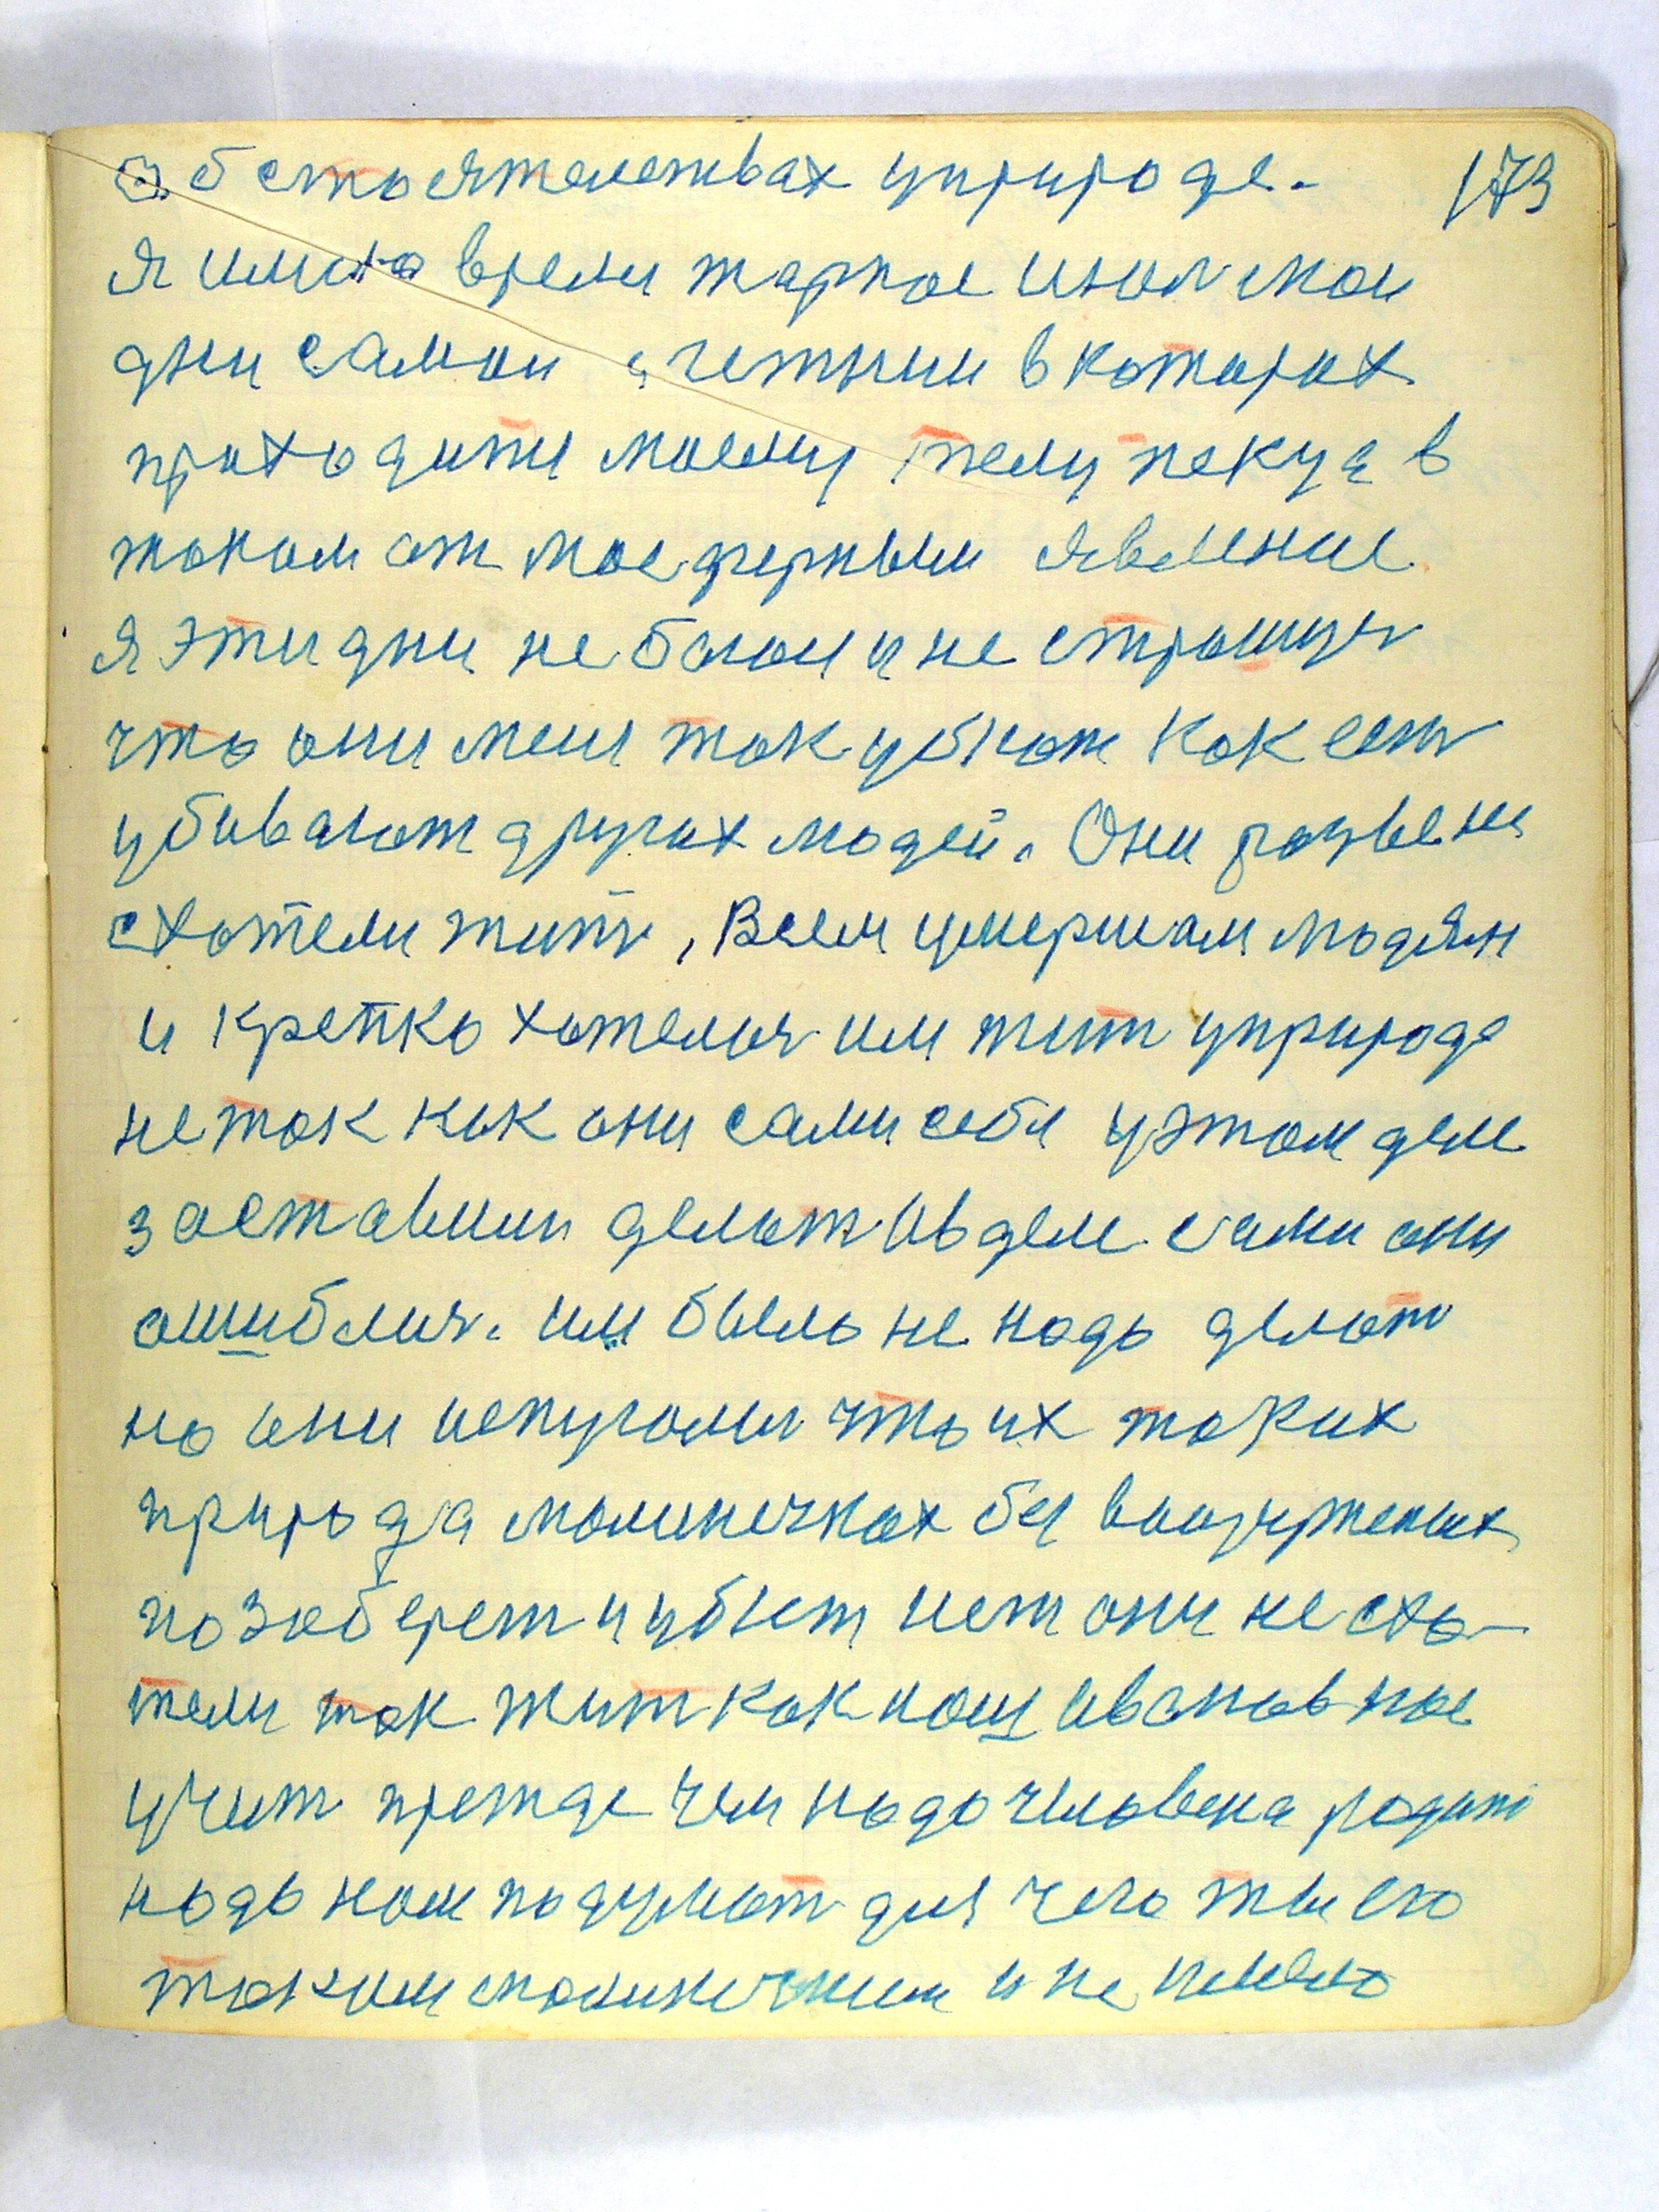 обстоятелствах уприроде. 173
я имино время жаркое июля мои
дни самои счетнии в которох
проходити моему телу пекуя в
таком атмосферным явление
я эти дни не боюсь и не страшусь
что они меня так убют как
убивают других людей. Они разве не
схотели жить, Всем умершим людям
и крепко хотелося им жить уприроде
не так как они сами себя уэтом деле
заставили делать ив деле сами они
ошиблися. им было не надо делать
но они испугалися что их таких
природа молинечких без
по заберет и убьет нет они не схо-
тели так жить как наш ивановное
учит прежде чем надо человека родить
надо нам подумать для чего ты его
таким молинечким и не